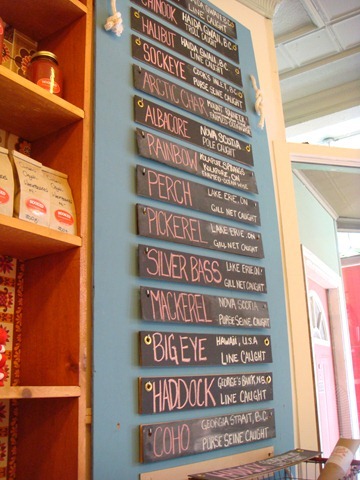 CHINOOK
HAIDA GWAII, B.C.
LINE CAUGHT
HALIBUT
HAIDA GWAII, B.C.
POLE CAUGHT
SOCKEYE
COOKS INLET, B.C.
PURSE SEINE CAUGHT
ARCTIC CHAR
ALBACORE
NOVA SCOTIA
POLE CAUGHT
RAINBOW
SPRINGS
KOLAPORE, ON
PERCH
LAKE ERIE, ON
GILL NET CAUGHT
PICKEREL
LAKE ERIE, ON
GILL NET CAUGHT
SILVER BASS
LAKE ERIE, ON
GILL NET CAUGHT
MACKEREL
NOVA SCOTIA
PURSE SEINE CAUGHT
BIG EYE
HAWAII, U.S.A
LINE CAUGHT
HADDOCK
GEORGE'S BANK, N.S.
LINE CAUGHT
COHO
GEORGIA STRAIT, B.C.
PURSE SEINE CAUGHT